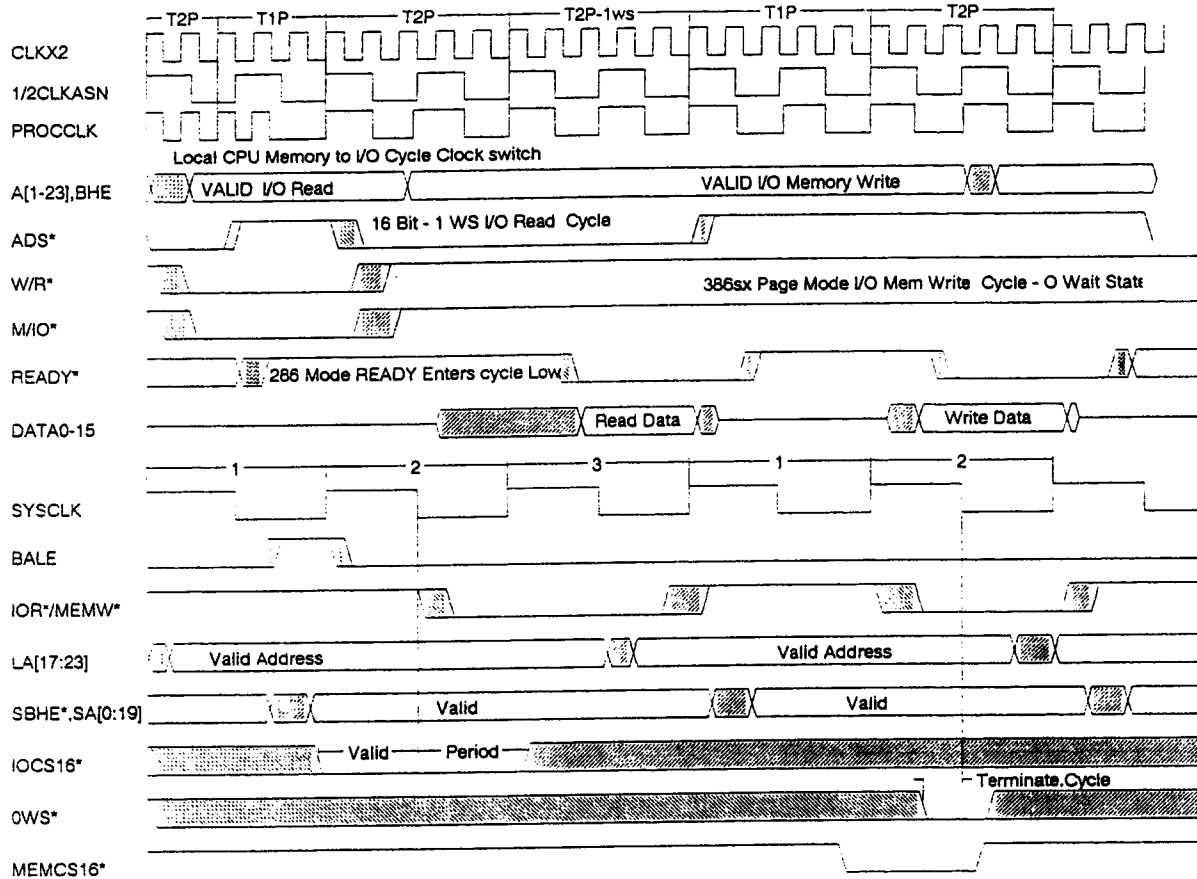 T2P T1P T2P T2P-1ws T1P T2P
CLKX2
1/2CLKASN
PROCCLK
Local CPU Memory to I/O Cycle Clock switch
A[1-23],BHE VALID I/O Read VALID I/O Memory Write
ADS* 16 Bit - 1 WS I/O Read Cycle
W/R* 386sx Page Mode I/O Mem Write Cycle - O Wait State
M/IO*
READY* 286 Mode READY Enters cycle Low
DATA0-15 Read Data Write Data
1 2 3 1 2
SYSCLK
BALE
IOR*/MEMW*
LA[17:23] Valid Address Valid Address
SBHE*,SA[0:19] Valid Valid
IOCS16* Valid Period
Terminate.Cycle
0WS*
MEMCS16*